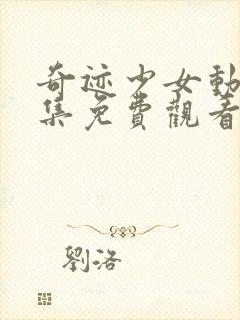 奇迹少女動
集免費觀看
劉洛